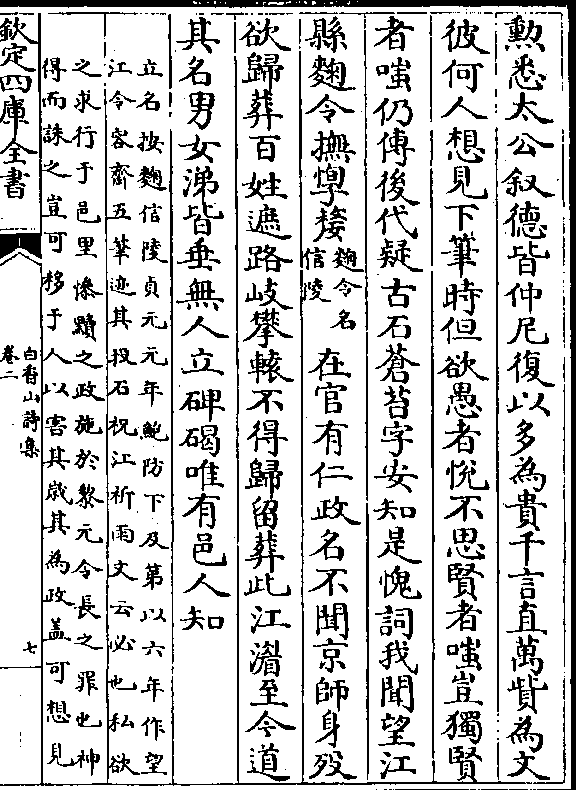 勲悉太公叙德皆仲尼復以多為貴千言直萬貲為文
彼何人想見下筆時但欲愚者悅不思賢者嗤豈獨賢
者嗤仍傳後代疑古石蒼苔字安知是愧詞我聞望江
縣麴令撫惸嫠麴令名信陵在官有仁政名不聞京師身殁
欲歸葬百姓遮路岐攀轅不得歸留葬此江湄至今道
其名男女涕皆垂無人立碑碣唯有邑人知
立名按麴信陵貞元元年鮑防下及第以六年作望
江令容齋五筆迹其投石祝江祈雨文云必也私欲
之求行于邑里慘黷之政施於黎元令長之罪也神
得而誅之豈可移于人以害其歲其為政盖可想見
欽定四庫全書
白香山詩集
卷二
七